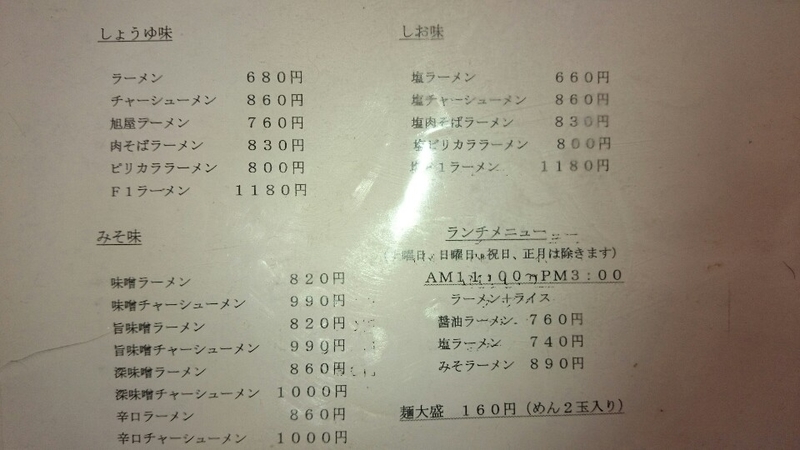 しょうゆ味
ラーメン ６８０円
チャーシューメン ８６０円
旭屋ラーメン ７６０円
肉そばラーメン ８３０円
ピリカララーメン ８００円
Ｆ１ラーメン １１８０円
みそ味
味噌ラーメン ８２０円
味噌チャーシューメン ９９０円
旨味噌ラーメン ８２０円
旨味噌チャーシューメン ９９０円
深味噌ラーメン ８６０円
深味噌チャーシューメン １０００円
辛口ラーメン ８６０円
辛口チャーシューメン １０００円
しお味
塩ラーメン ６６０円
塩チャーシューメン ８６０円
塩肉そばラーメン ８３０円
塩ピリカララーメン ８００円
１ラーメン １１８０円
ランチメニュー
曜日、日曜日、祝日、正月は除きます）
ＡＭ１１：００～ＰＭ３：００
ラーメン＋ライス
醤油ラーメン ７６０円
塩ラーメン ７４０円
みそラーメン ８９０円
麺大盛 １６０円（めん２玉入り）